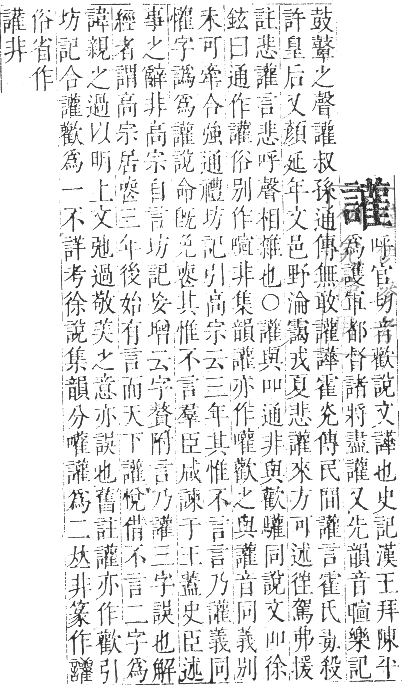 讙
呼官切音歡說文譁也史記漢王拜陳平
為護軍都督諸將盡讙又先韻音喧樂記
鼓鼙之聲讙叔孫通傳無敢讙譁霍光傳民間讙言霍氏毒殺
許皇后又顏延年文邑野淪藹戎夏悲讙來方可述徃駕弗援
註悲讙言悲呼聲相雜也○讙與吅通非與歡驩同說文吅徐
鉉曰通作讙俗別作喧非集韻讙亦作嚾歡之與讙音同義別
未可牽合強通禮坊記引高宗云三年其惟不言言乃讙義同
懽字譌為讙說命旣免喪其惟不言羣臣咸諫于王蓋史臣述
事之辭非高宗自言坊記妄增云字贅附言乃讙三字誤也解
經者謂高宗居喪三年後始有言而天下讙悅借不言二字為
諱親之過以明上文弛過敬美之意亦誤也舊註讙亦作歡引
坊記合讙歡為一不詳考徐說集韻分嚾讙為二𠀤非篆作讙
俗省作
讙非